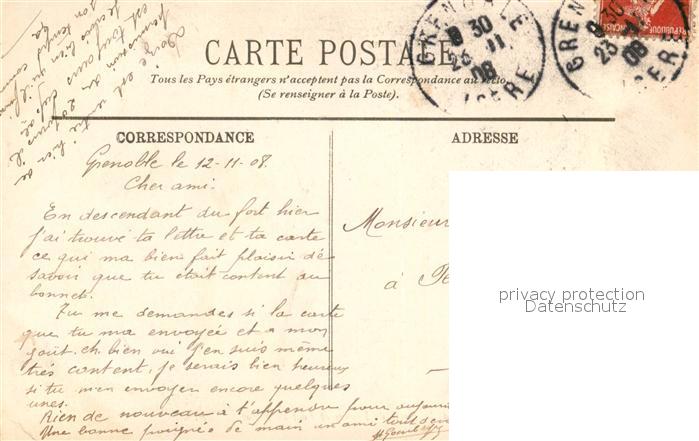 CARTE POSTALE
Tous les Pays étrangers n'acceptent pas la Correspondance au recto
(Se renseigner à la Poste).
GRENOBLE
ISERE
9 30
23 -11
08
GRENOBLE
ISERE
9 30
23 -11
08
CORRESPONDANCE
Grenoble le 12-11-08.
Cher ami.
En descendant du fort hier
j'ai trouvé ta lettre et ta carte
ce qui ma bien fait plaisir de
savoir que tu était content du
bonnet.
Tu me demandes si la carte
que tu ma envoyée et a mon
goût. eh bien oui j'en suis même
très content, je serais bien heureux
si tu m'en envoyer encore quelques
unes.
Rien de nouveau à t'apprendre pour aujourd
Une bonne poignée de main un ami tout
ADRESSE
Monsieur
à
privacy protection
Datenschutz